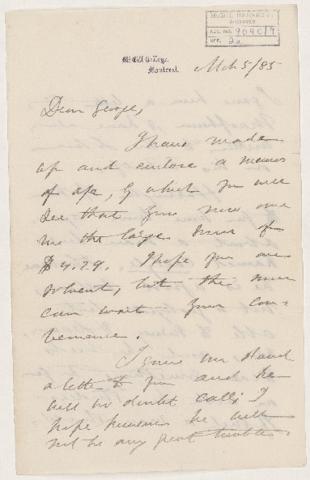 McGILL UNIVERSITY
ARCHIVES
ACC. NO. 9090/9
REF. 22
McGill College,
Montreal.
Mch 5/85
Dear George,
I have made
up and enclose a memo
of a/c, by which you will
see that you now owe
me the large sum of
$4.29. I hope you are
solvent, but this sum
can wait your con-
venience.
I gave Mr
a letter to you and he
will no doubt call; I
hope however he will
not be any great trouble.